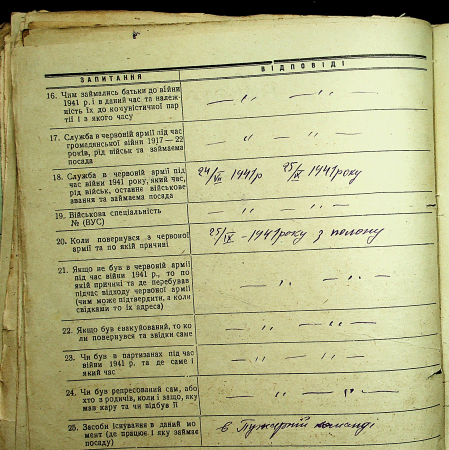 ЗАПИТАННЯ ВІДПОВІДІ
16. Чим займались батьки до війни
1941 р. і в даний час та належ-
ність їх до комуністичної пар-
тії і з якого часу
— „ —
17. Служба в червоній армії під час
громадянської війни 1917—22
років, рід військ та займаема
посада
— „ —
18. Служба в червоній армії під
час війни 1941 року, який час,
рід військ, останнє військове
звання та займаема посада
24/VII 1941 р 25/IX 1941 року
19. Військова спеціальність
№ (ВУС)
— „ —
20. Коли повернувся з червоної
армії та по якій причині
25/IX - 1941 року з полону
21. Якщо не був в червоній армії
під час війни 1941 р., то по
якій причині та де перебував
підчас відходу червоної армії
(чим може підтвердити, а коли
свідками то їх адреса)
— „ —
22. Якщо був евакуйований, то ко-
ли повернувся та звідки саме
— „ —
23. Чи був в партизанах під час
війни 1941 р. та де саме і
який час
— „ —
24. Чи був репресований сам, або
хто з родичів, коли і защо, яку
мав кару та чи відбув її
— „ —
25. Засоби існування в даний мо-
мент (де працює і яку займає
посаду)
в команді